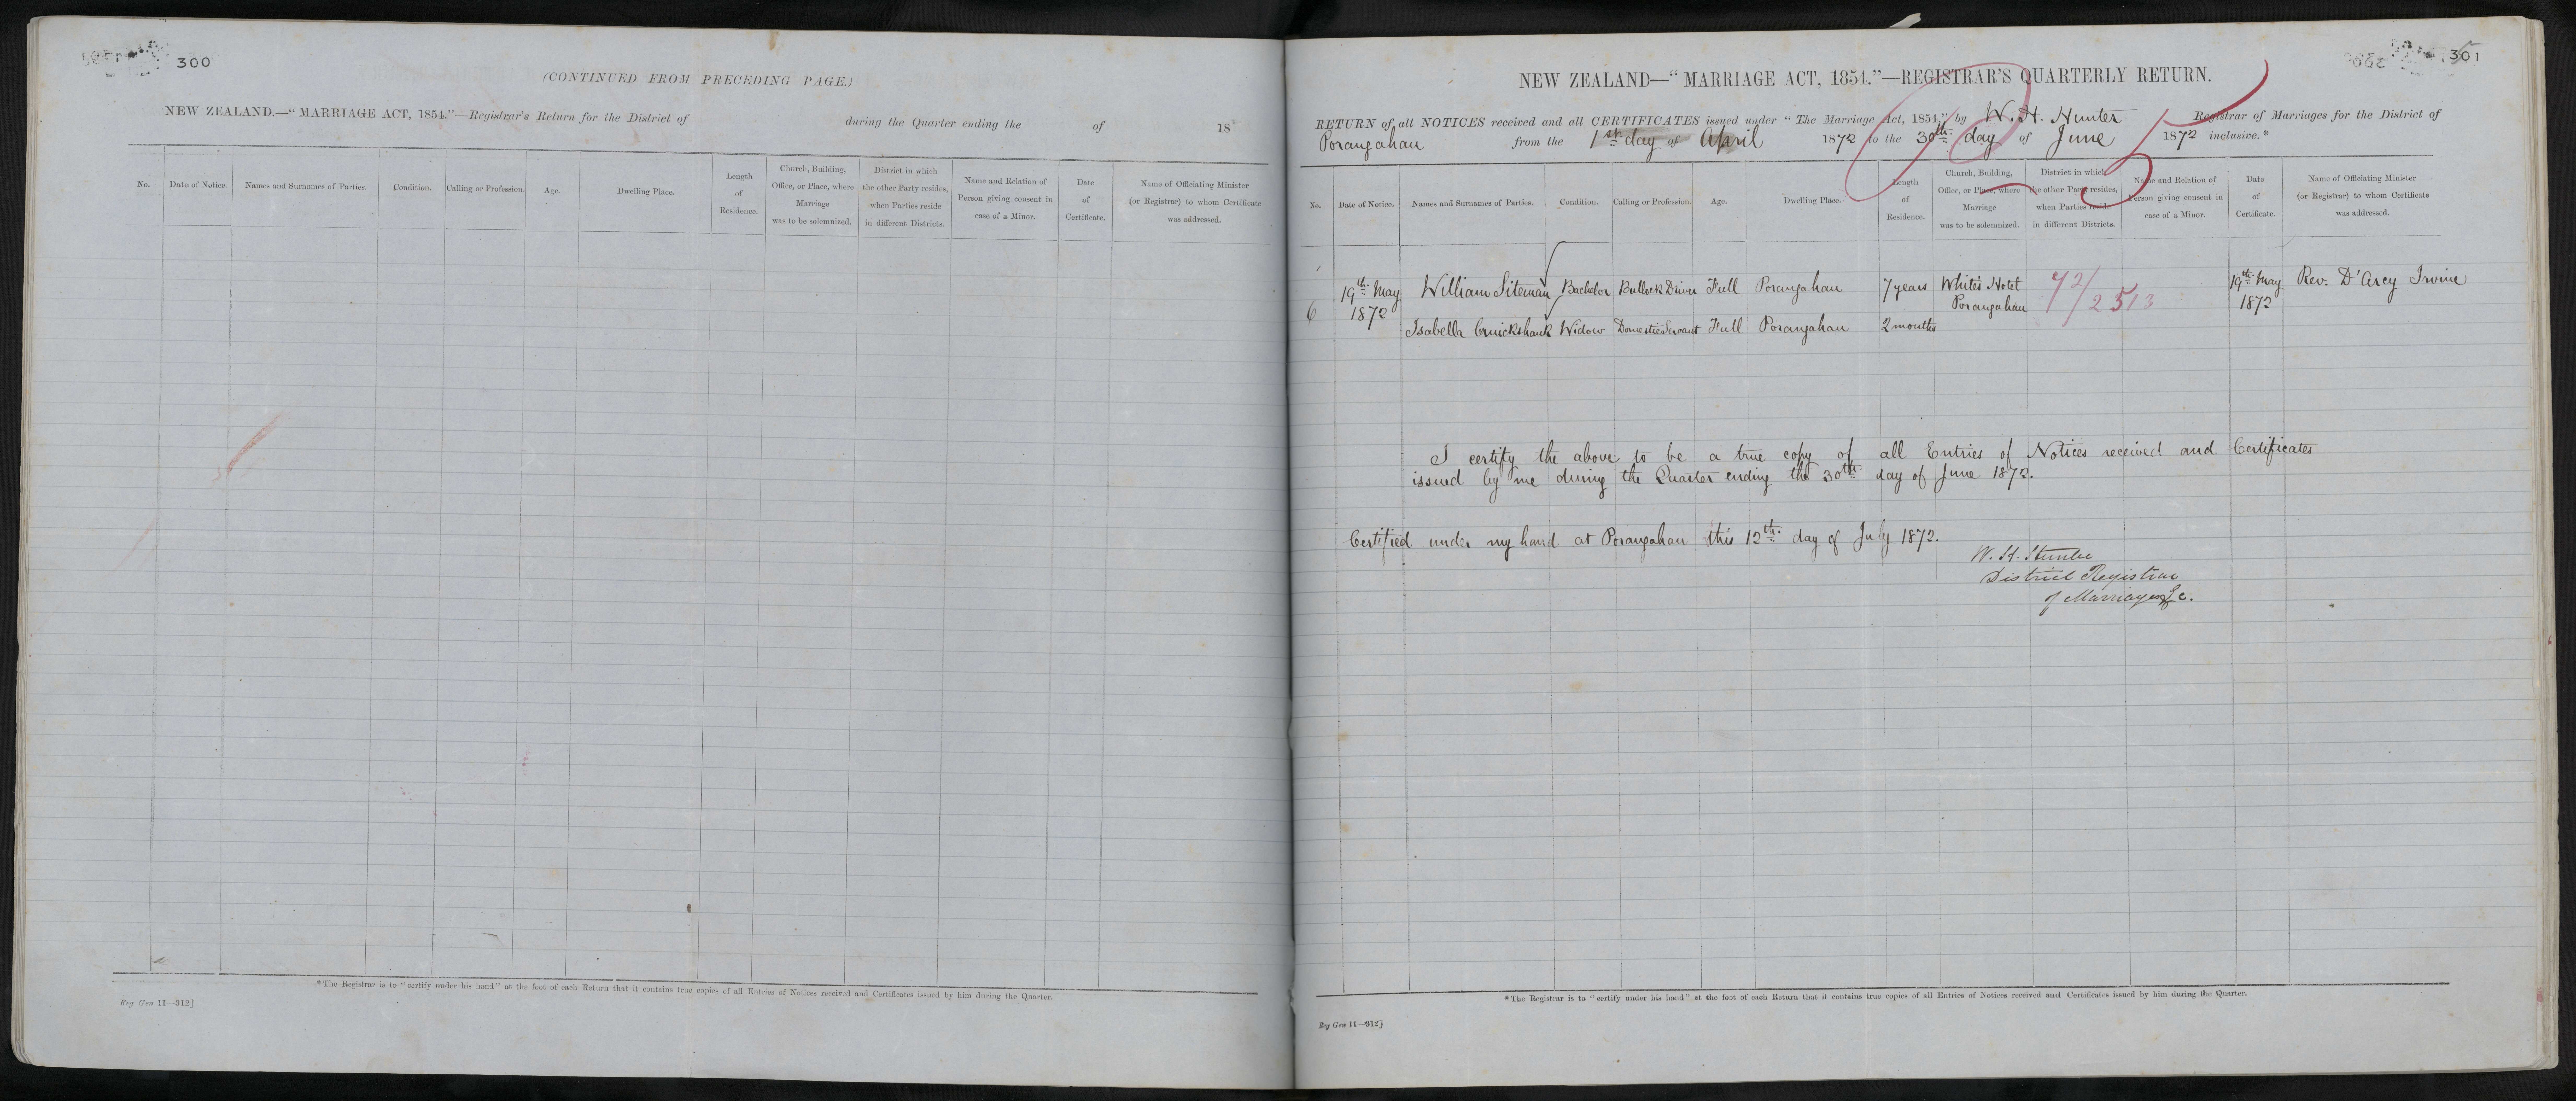 300
(CONTINUED FROM PRECEDING PAGE.)
NEW ZEALAND.—"MARRIAGE ACT, 1854."—Registrar's Return for the District of during the Quarter ending the of 18
No. Date of Notice. Names and Surnames of Parties. Condition. Calling or Profession. Age. Dwelling Place. Length of Residence. Church, Building, Office, or Place, where Marriage was to be solemnized. District in which the other Party resides, when Parties reside in different Districts. Name and Relation of Person giving consent in case of a Minor. Date of Certificate. Name of Officiating Minister (or Registrar) to whom Certificate was addressed.
*The Registrar is to "certify under his hand" at the foot of each Return that it contains true copies of all Entries of Notices received and Certificates issued by him during the Quarter.
Reg Gen 11—312]
301
NEW ZEALAND—"MARRIAGE ACT, 1854."—REGISTRAR'S QUARTERLY RETURN.
RETURN of all NOTICES received and all CERTIFICATES issued under "The Marriage Act, 1854," by W. H. Hunter Registrar of Marriages for the District of
Porangahau from the 1st day of April 1872 to the 30th day of June 1872 inclusive.*
No. Date of Notice. Names and Surnames of Parties. Condition. Calling or Profession. Age. Dwelling Place. Length of Residence. Church, Building, Office, or Place, where Marriage was to be solemnized. District in which the other Party resides, when Parties reside in different Districts. Name and Relation of Person giving consent in case of a Minor. Date of Certificate. Name of Officiating Minister (or Registrar) to whom Certificate was addressed.
19th May William Siteman Bachelor Bullock Driver Full Porangahau 7 years White's Hotel 72/2513 19th May Rev. D'Arcy Irvine
6 1872 Porangahau 1872
Isabella Cruickshank Widow Domestic Servant Full Porangahau 2 months
I certify the above to be a true copy of all Entries of Notices received and Certificates
issued by me during the Quarter ending the 30th day of June 1872.
Certified under my hand at Porangahau this 12th day of July 1872.
W. H. Hunter
District Registrar
of Marriages &c.
*The Registrar is to "certify under his hand" at the foot of each Return that it contains true copies of all Entries of Notices received and Certificates issued by him during the Quarter.
Reg Gen 11—312]